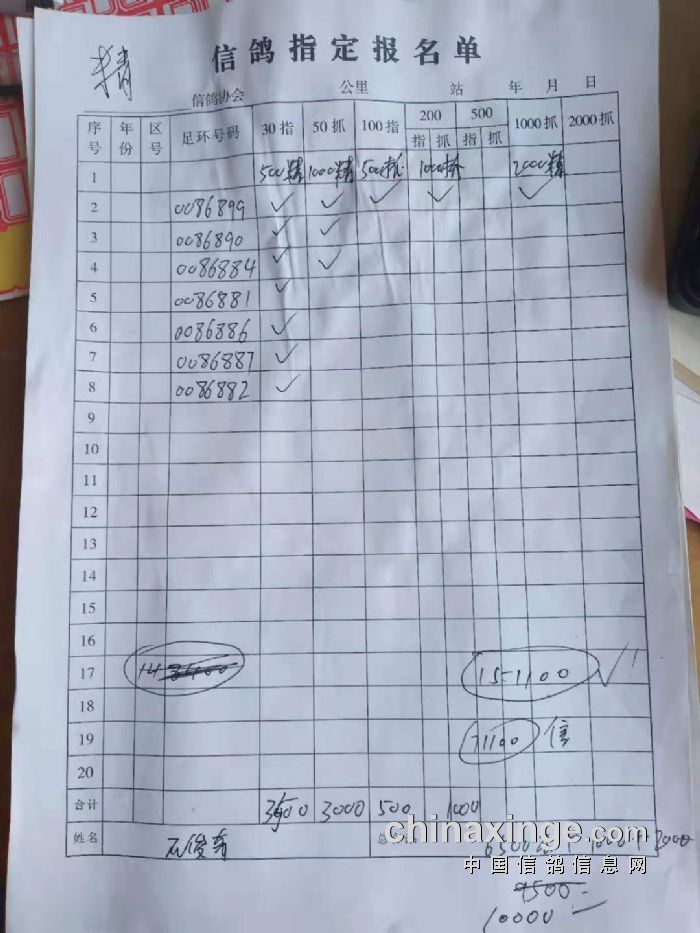 精
信鸽指定报名单
信鸽协会 公里 站 年 月 日
序号 年份 区号 足环号码 30指 50抓 100指 200 500 1000抓 2000抓
指 抓 指 抓
1 500精 1000精 500 1000 2000精
2 0086899 ✓ ✓ ✓ ✓ ✓
3 0086890 ✓ ✓
4 0086884 ✓ ✓
5 0086881 ✓
6 0086886 ✓
7 0086887 ✓
8 0086882 ✓
9
10
11
12
13
14
15
16
17 14 15-1100 ✓
18
19 71100 信
20
合计 3500 3000 500 1000
姓名 石俊 总 6500 1000 2000
chinaxinge.com
中国信鸽信息网
9500
10000